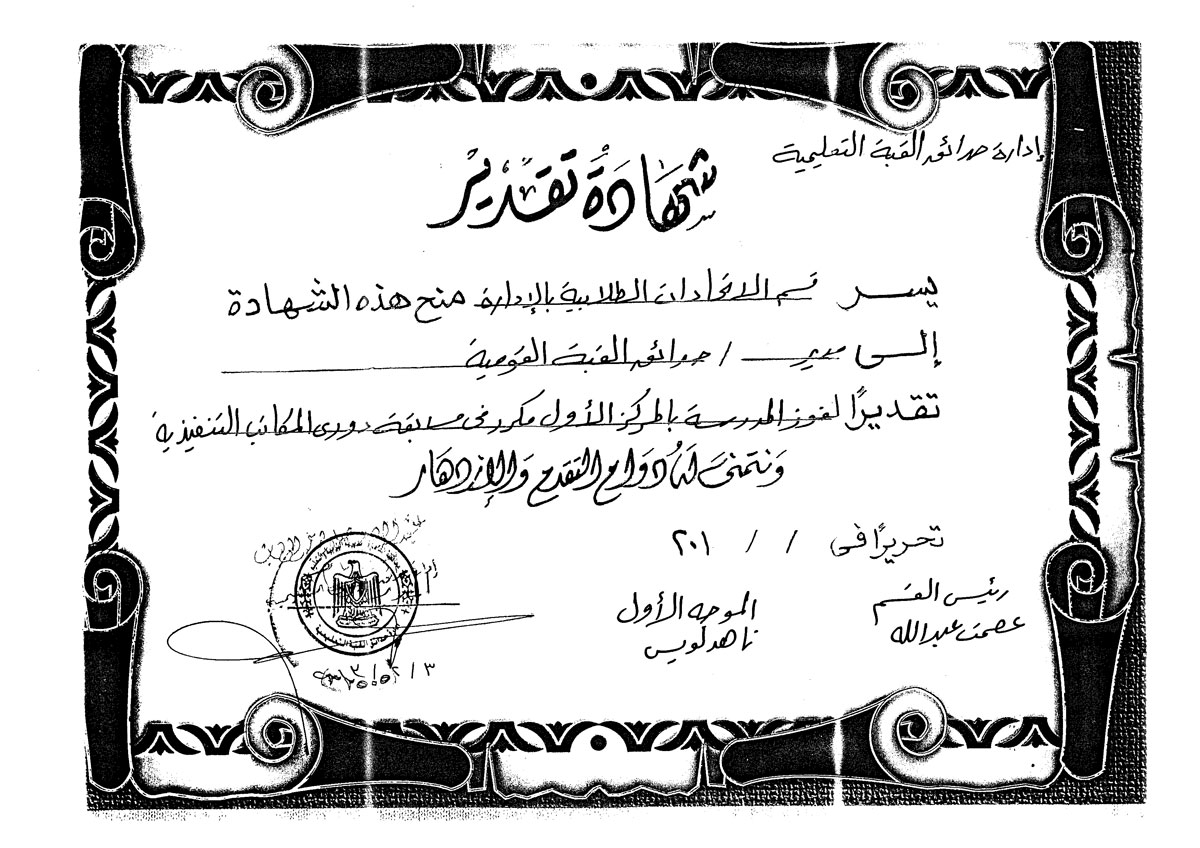 إدارة حدائق القبة التعليمية
شهادة تقدير
يسر قسم الاتحادات الطلابية بالإدارة منح هذه الشهادة
إلى مدير / حدائق القبة القومية
تقديرًا لفوز المدرسة بالمركز الأول مكرر فى مسابقة دورى المكاتب التنفيذية
ونتمنى لنا دوام التقدم والإزدهار
تحريرًا فى / / ٢٠١
رئيس القسم
عصمت عبدالله
الموجه الأول
ناهد لويس